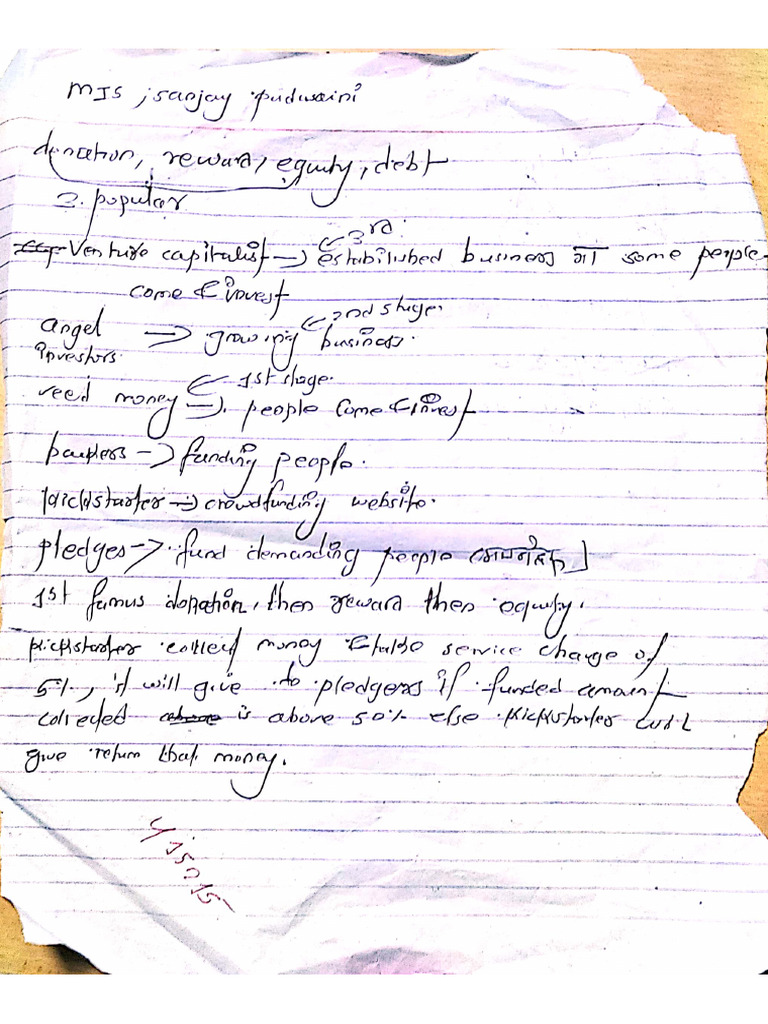 MIS ; sanjay pudasaini
donation, reward, equity, debt
3. popular
3rd.
Venture capitalist → established business मा some people
come & invest
2nd stage.
angel → growing business.
investors.
1st stage.
seed money → people come & invest
backers → funding people.
kickstarter → crowdfunding website.
pledges → fund demanding people
1st famus donation, then reward then equity.
kickstarter collect money & take service charge of
5%, it will give to pledgers if funded amount
collected is above 50% else kickstarter will
give return that money.